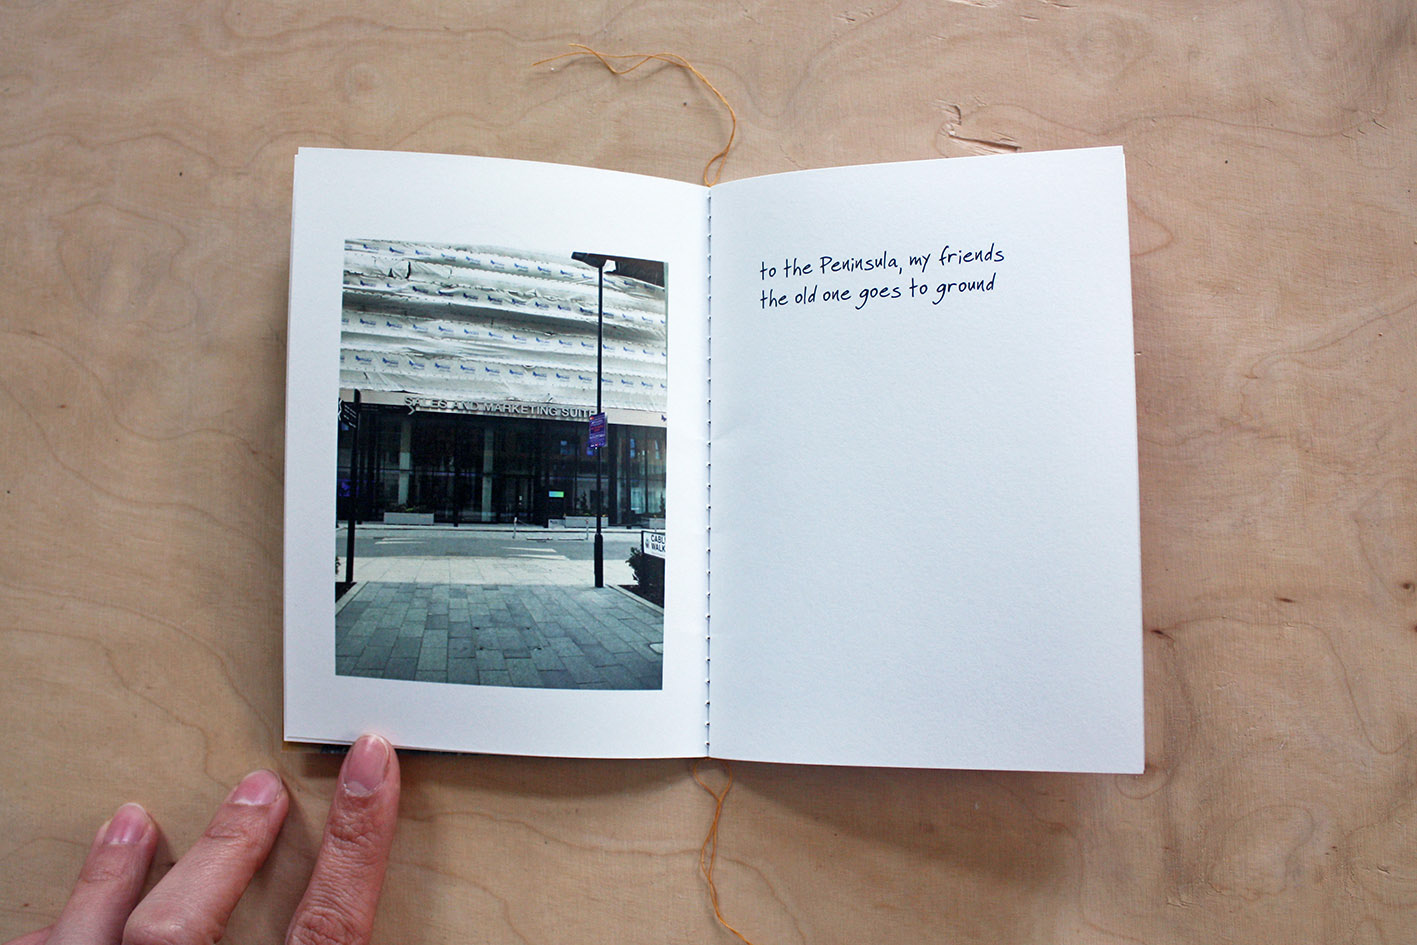 SALES AND MARKETING SUITE
CABLE
WALK
to the Peninsula, my friends
the old one goes to ground